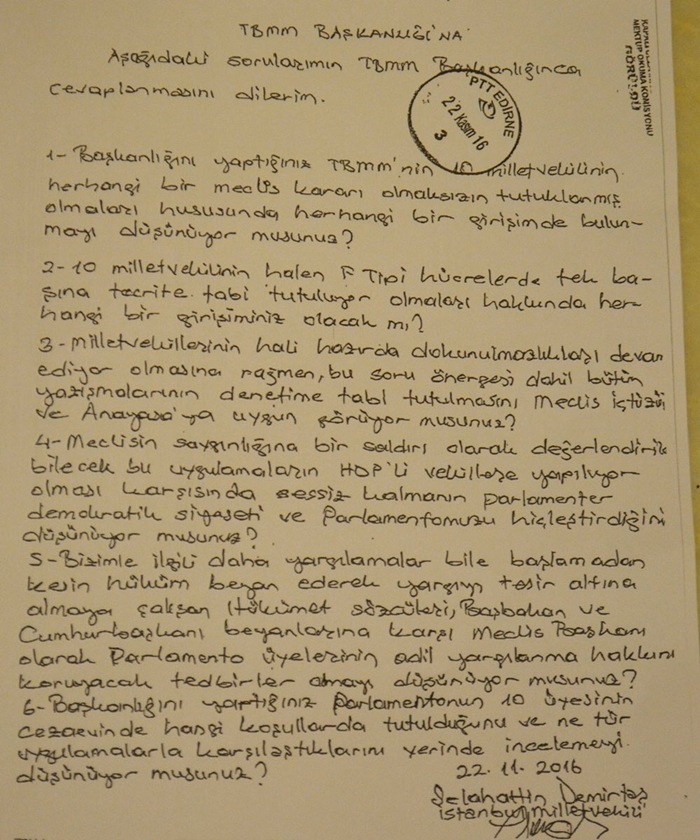 TBMM BAŞKANLIĞI'NA
Aşağıdaki sorularımın TBMM Başkanlığınca
cevaplanmasını dilerim.
MEKTUP OKUMA KOMİSYONU
GÖRÜLDÜ
PTT EDİRNE
22 Kasım 16
3
1- Başkanlığını yaptığınız TBMM'nin 10 milletvekilinin
herhangi bir meclis kararı olmaksızın tutuklanmış
olmaları hususunda herhangi bir girişimde bulun-
mayı düşünüyor musunuz?
2- 10 milletvekilinin halen F Tipi hücrelerde tek ba-
şına tecrite tabi tutuluyor olmaları hakkında her-
hangi bir girişiminiz olacak mı?
3- Milletvekillerinin hali hazırda dokunulmazlıkları devam
ediyor olmasına rağmen, bu soru önergesi dahil bütün
yazışmalarının denetime tabi tutulmasını Meclis İçtüzüğü
ve Anayasa'ya uygun görüyor musunuz?
4- Meclisin saygınlığına bir saldırı olarak değerlendirile
bilecek bu uygulamaların HDP'li vekillere yapılıyor
olması karşısında sessiz kalmanın parlamenter
demokratik siyaseti ve Parlamentomuzu hiçleştirdiğini
düşünüyor musunuz?
5- Bizimle ilgili daha yargılamalar bile başlamadan
kesin hüküm beyan ederek yargıyı tesir altına
almaya çalışan Hükümet sözcüleri, Başbakan ve
Cumhurbaşkanı beyanlarına karşı Meclis Başkanı
olarak Parlamento üyelerinin adil yargılanma hakkını
koruyacak tedbirler almayı düşünüyor musunuz?
6- Başkanlığını yaptığınız Parlamentonun 10 üyesinin
cezaevinde hangi koşullarda tutulduğunu ve ne tür
uygulamalarla karşılaştıklarını yerinde incelemeyi
düşünüyor musunuz?
22.11.2016
Selahattin Demirtaş
İstanbul milletvekili